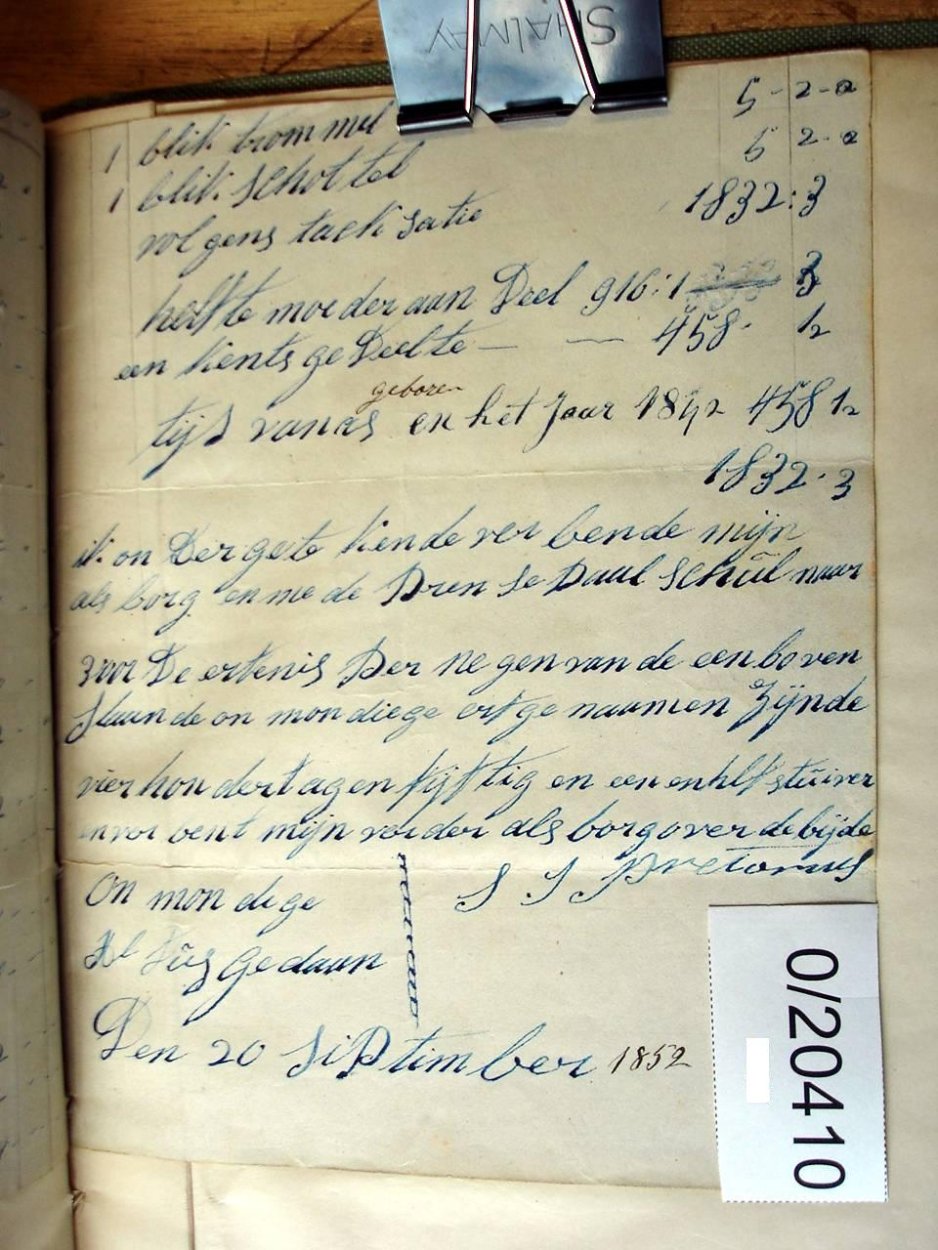 SHALMAY
1 blik trommel 5-2-0
1 blik schottel 5 2-0
volgens tack satie 1832:3
helfte moeder aan Deel 916:1 3
een kents ge Deelte — — 458. ½
geboren
tijs vanas en het Jaar 1842 458 ½
1832.3
ik on Dergete kende ver bende mijn
als borg en me de Dren se Paul schúl naar
voor De ertenis Der ne gen van de een boven
staande on mon diege erf ge naamen Zijnde
vier hon dert agen fijftig en een en hlf stúiver
en ver bent mijn verder als borg over de bijde
On mon dige S J Pretorius
Al dús gedaan
Den 20 SiPtimber 1852
0/20410